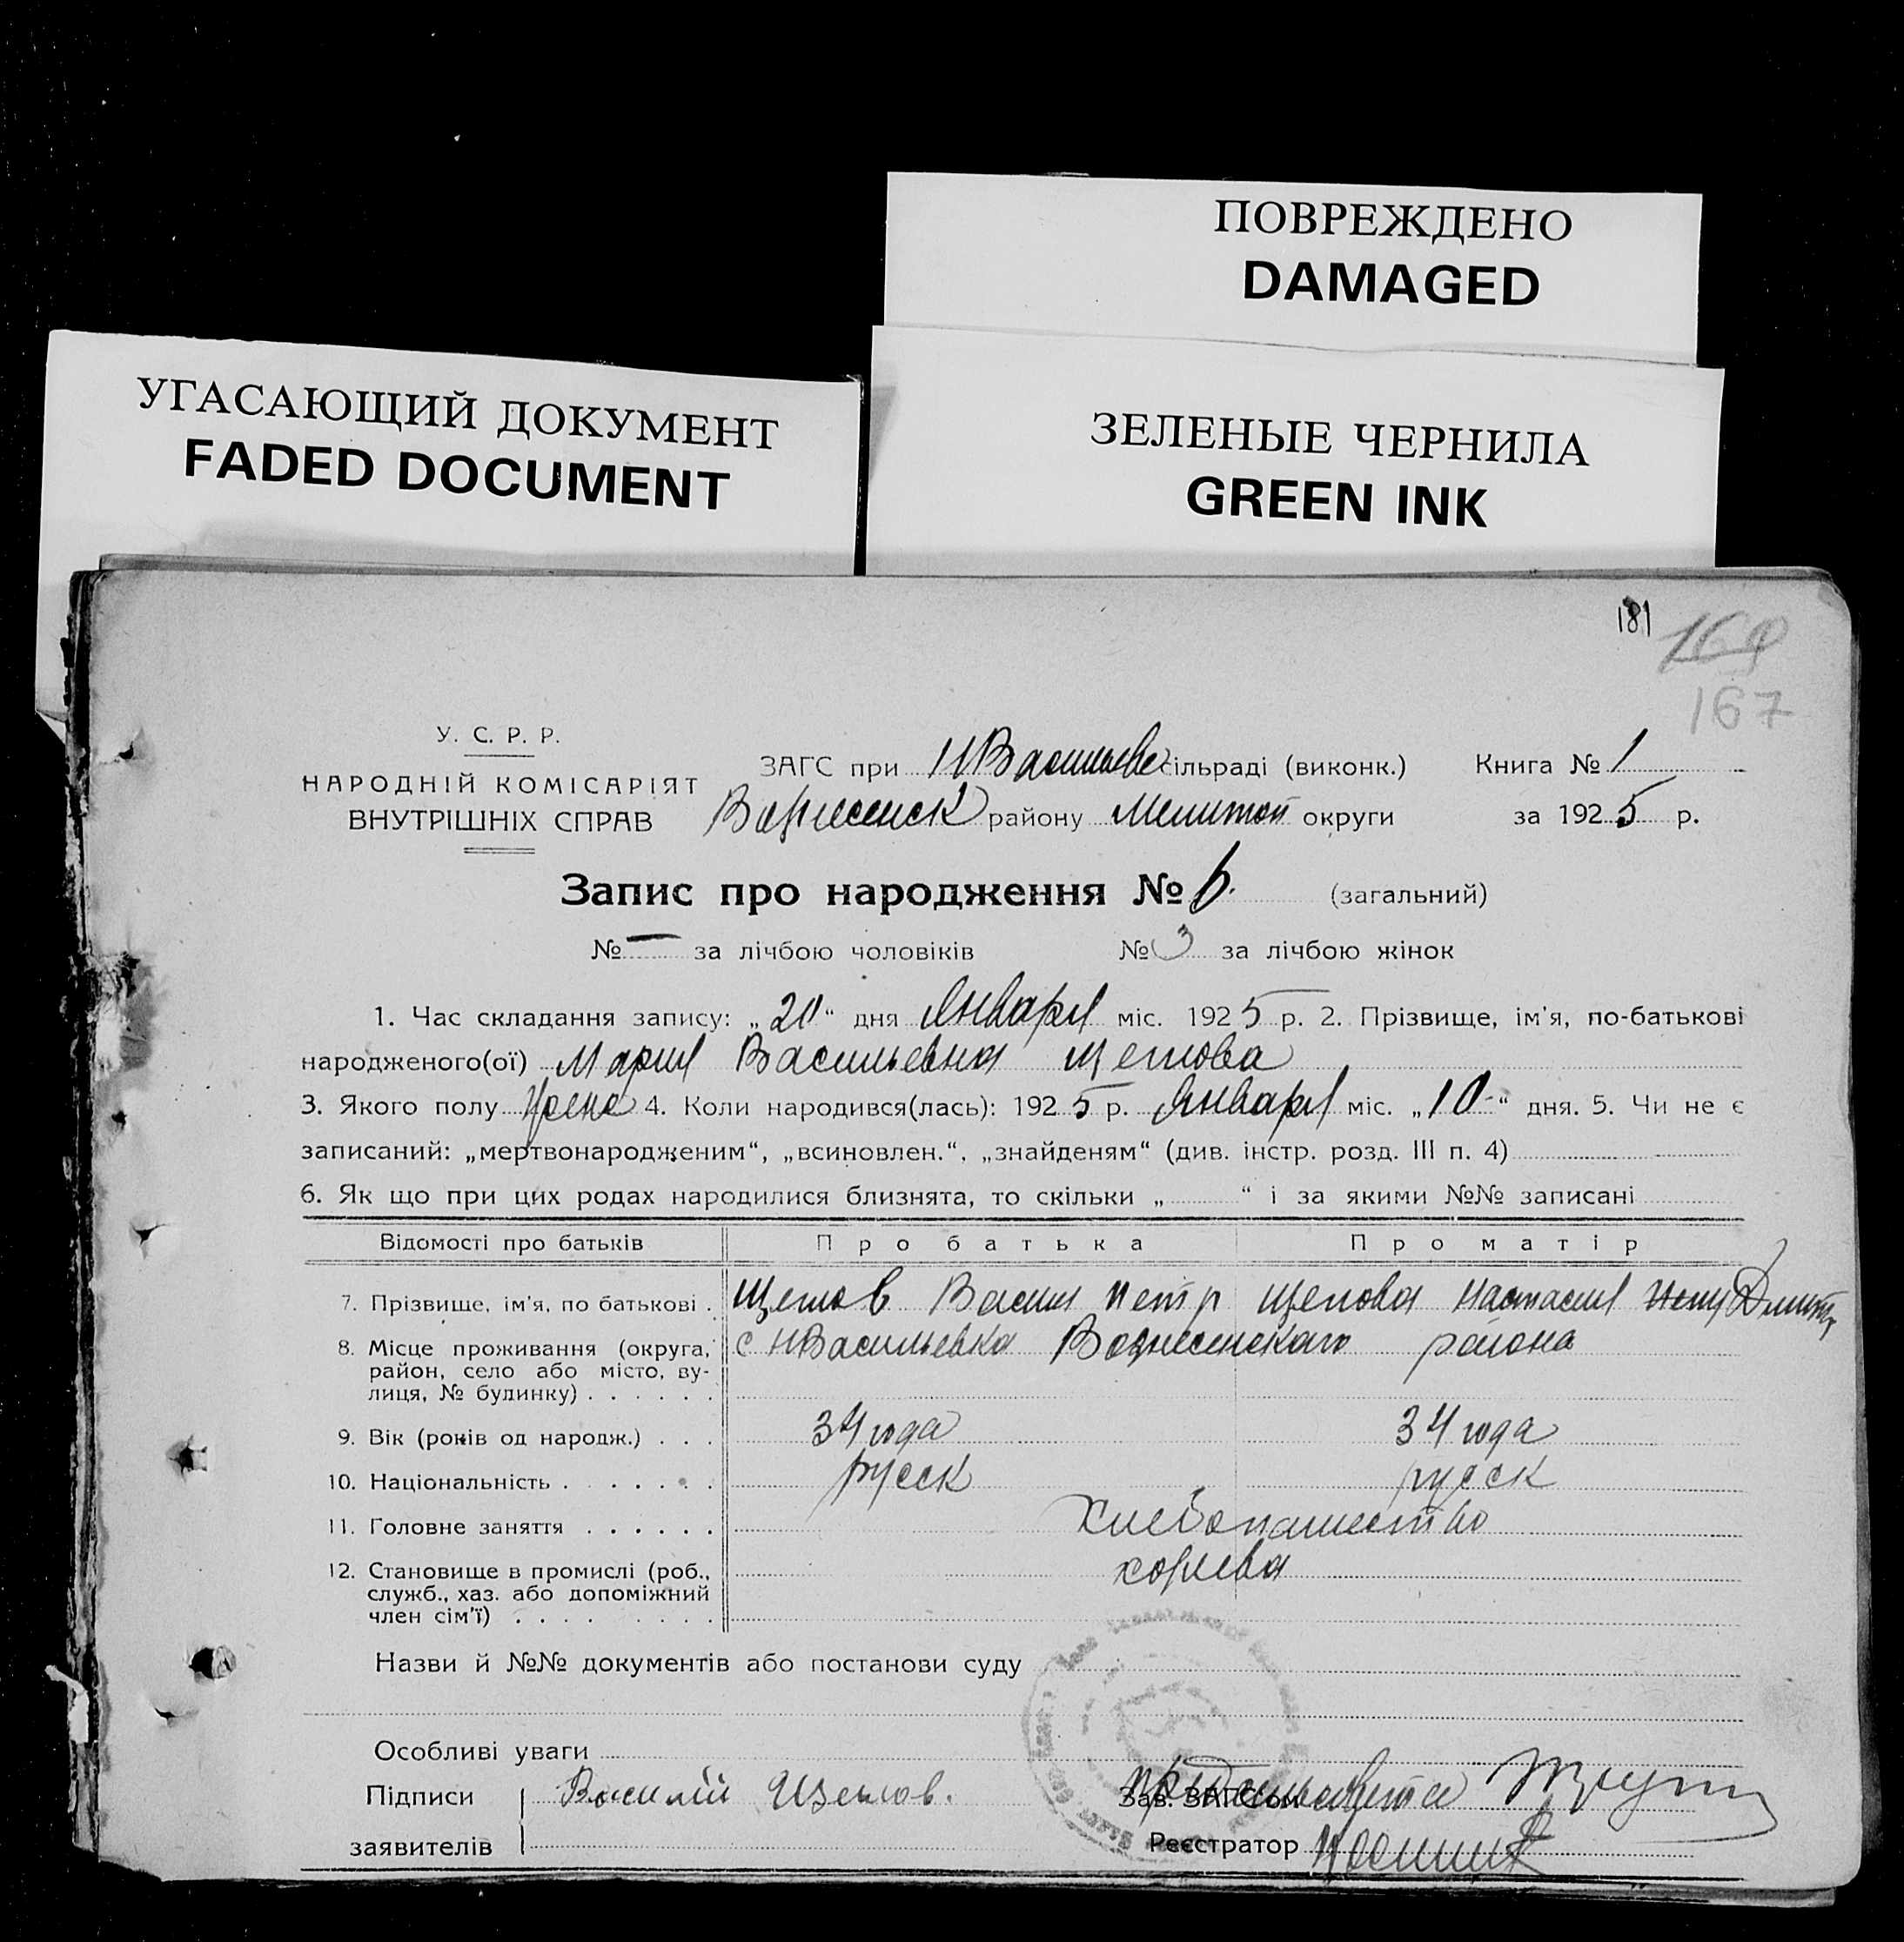 ПОВРЕЖДЕНО
DAMAGED
УГАСАЮЩИЙ ДОКУМЕНТ
FADED DOCUMENT
ЗЕЛЕНЫЕ ЧЕРНИЛА
GREEN INK
181
167
У. С. Р. Р.
НАРОДНІЙ КОМІСАРІЯТ
ВНУТРІШНІХ СПРАВ
ЗАГС при НВасильев сільраді (виконк.) Книга № 1
Вознесенск району Мелитоп округи за 1925 р.
Запис про народження № 6. (загальний)
№ — за лічбою чоловіків № 3 за лічбою жінок
1. Час складання запису: „20“ дня Января міс. 1925 р. 2. Прізвище, ім'я, по-батькові
народженого(ої) Мария Васильевна Щеглова
3. Якого полу женс 4. Коли народився(лась): 1925 р. Января міс. „10“ дня. 5. Чи не є
записаний: „мертвонародженим“, „всиновлен.“, „знайденям“ (див. інстр. розд. III п. 4)
6. Як що при цих родах народилися близнята, то скільки „ “ і за якими №№ записані
Відомості про батьків Про батька Про матір
7. Прізвище, ім'я, по батькові . Щеглов Васил Петр Щеглова Настасия Дмит
8. Місце проживання (округа, район, село або місто, ву-лиця, № будинку) . . . . . . с НВасильевка Вознесенскаго района
9. Вік (років од народж.) . . . 34 года 34 года
10. Національність . . . . . . . русск русск
11. Головне заняття . . . . . . Хлебопашество
12. Становище в промислі (роб., служб., хаз. або допоміжний член сім'ї) . . . . . . . . хозяева
Назви й №№ документів або постанови суду
Особливі уваги
Підписи Василий Щеглов.
Зав. ЗАГСом
заявителів
Реєстратор